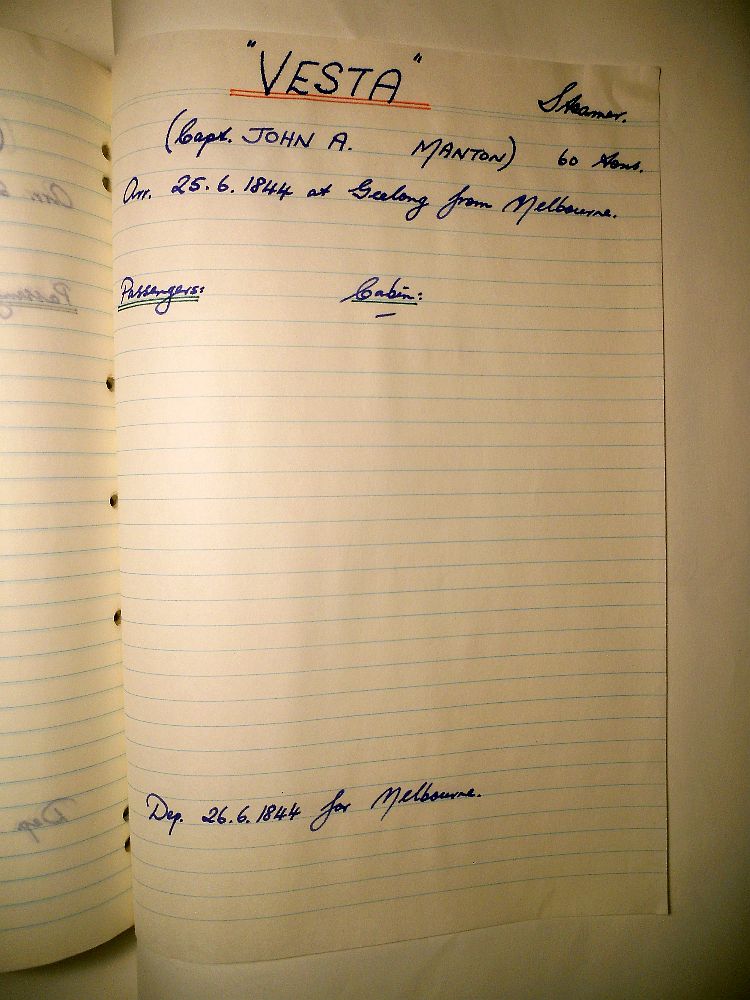 "VESTA" Steamer.
(Capt. JOHN A. MANTON) 60 tons.
Arr. 25.6.1844 at Geelong from Melbourne.
Passengers: Cabin:
—
Dep. 26.6.1844 for Melbourne.